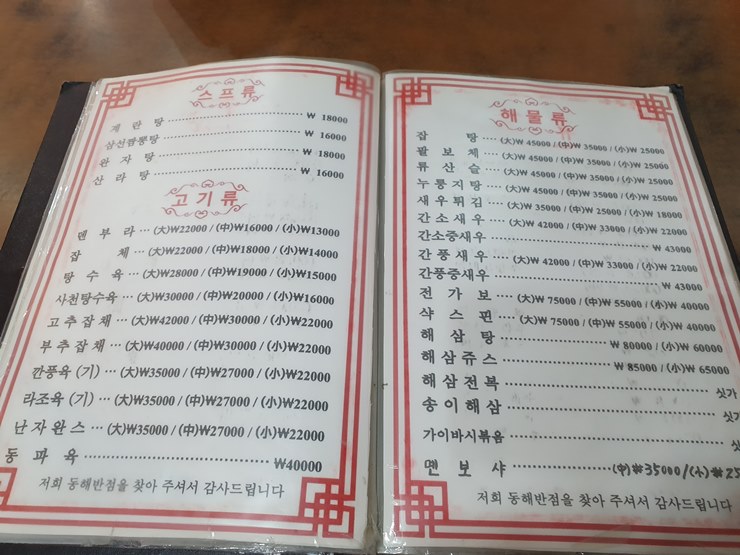 스프류
계 란 탕 ₩ 18000
삼선짬뽕탕 ₩ 16000
완 자 탕 ₩ 18000
산 라 탕 ₩ 16000
고기류
덴 부 라 ··· (大)₩22000 / (中)₩16000 / (小)₩13000
잡 채 ··· (大)₩22000 / (中)₩18000 / (小)₩14000
탕 수 육 ··· (大)₩28000 / (中)₩19000 / (小)₩15000
사천탕수육 ··· (大)₩30000 / (中)₩20000 / (小)₩16000
고추잡채 ··· (大)₩42000 / (中)₩30000 / (小)₩22000
부추잡채 ··· (大)₩40000 / (中)₩30000 / (小)₩22000
깐풍육 (기) ··· (大)₩35000 / (中)₩27000 / (小)₩22000
라조육 (기) ··· (大)₩35000 / (中)₩27000 / (小)₩22000
난자완스 ··· (大)₩35000 / (中)₩27000 / (小)₩22000
동 파 육 ₩40000
저희 동해반점을 찾아 주셔서 감사드립니다
해물류
잡 탕 ··· (大)₩ 45000 / (中)₩ 35000 / (小)₩ 25000
팔 보 채 ··· (大)₩ 45000 / (中)₩ 35000 / (小)₩ 25000
류 산 슬 ··· (大)₩ 45000 / (中)₩ 35000 / (小)₩ 25000
누룽지탕 ··· (大)₩ 45000 / (中)₩ 35000 / (小)₩ 25000
새우튀김 ··· (大)₩ 35000 / (中)₩ 25000 / (小)₩ 18000
간소새우 ··· (大)₩ 42000 / (中)₩ 33000 / (小)₩ 22000
간소중새우 ₩ 43000
간풍새우 ··· (大)₩ 42000 / (中)₩ 33000 / (小)₩ 22000
간풍중새우 ₩ 43000
전 가 보 ··· (大)₩ 75000 / (中)₩ 55000 / (小)₩ 40000
샥 스 핀 ··· (大)₩ 75000 / (中)₩ 55000 / (小)₩ 40000
해 삼 탕 ₩ 80000 / (小)₩ 60000
해삼쥬스 ₩ 85000 / (小)₩ 65000
해삼전복 싯가
송이해삼 싯
가이바시볶음 싯
맨 보 샤 (中)₩35000/(小)₩25
저희 동해반점을 찾아 주셔서 감사드립니다